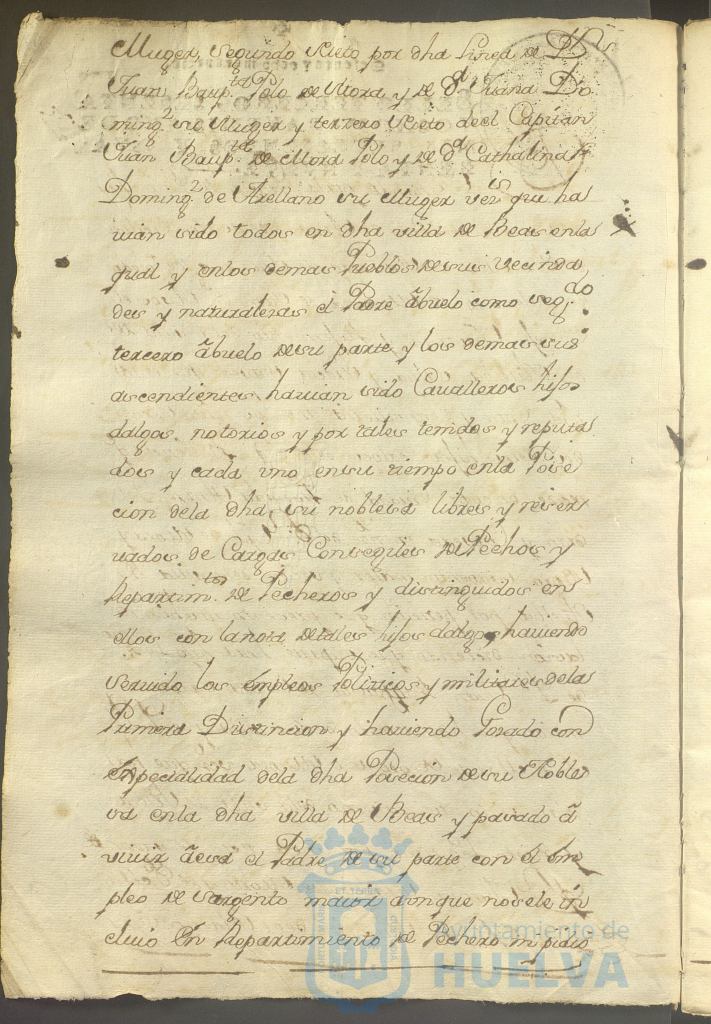 Muger, segundo Nieto por dha Linea de Dn
Juan Baupta Polo de Mora y de Da Juana Do
ming.z su Muger y tercero Nieto de el Capitan
Juan Baupta de Mora Polo y de Da Cathalina
Doming.z de Arellano su Muger vez.s que ha
uian sido todos en dha villa de Beas enla
qual y enlos demas Pueblos de sus vecinda
des y naturalezas el Padre abuelo como seg.do
tercero abuelo de su parte y los demas sus
ascendientes hauian sido Caualleros hijos
dalgos notorios y por tales tenidos y reputa
dos y cada uno en su tiempo enla Pose
cion dela dha, su nobleza libres y reser
uados de Cargas Consegiles de Pechos y
Repartim.tos de Pecheros y distinguidos en
ellos con la nota de tales hijos dalgos, hauiendo
seruido los empleos Politicos y militares de la
Primera Distincion y hauiendo Gozado con
especialidad dela dha Poseción de su Noble
sa enla dha villa de Beas y pasado â
viuir â esa el Padre de su parte con el em
pleo de sargento maior aunque no se le in
cluio en Repartimiento de Pechero ni pidio
Ayuntamiento de
HUELVA